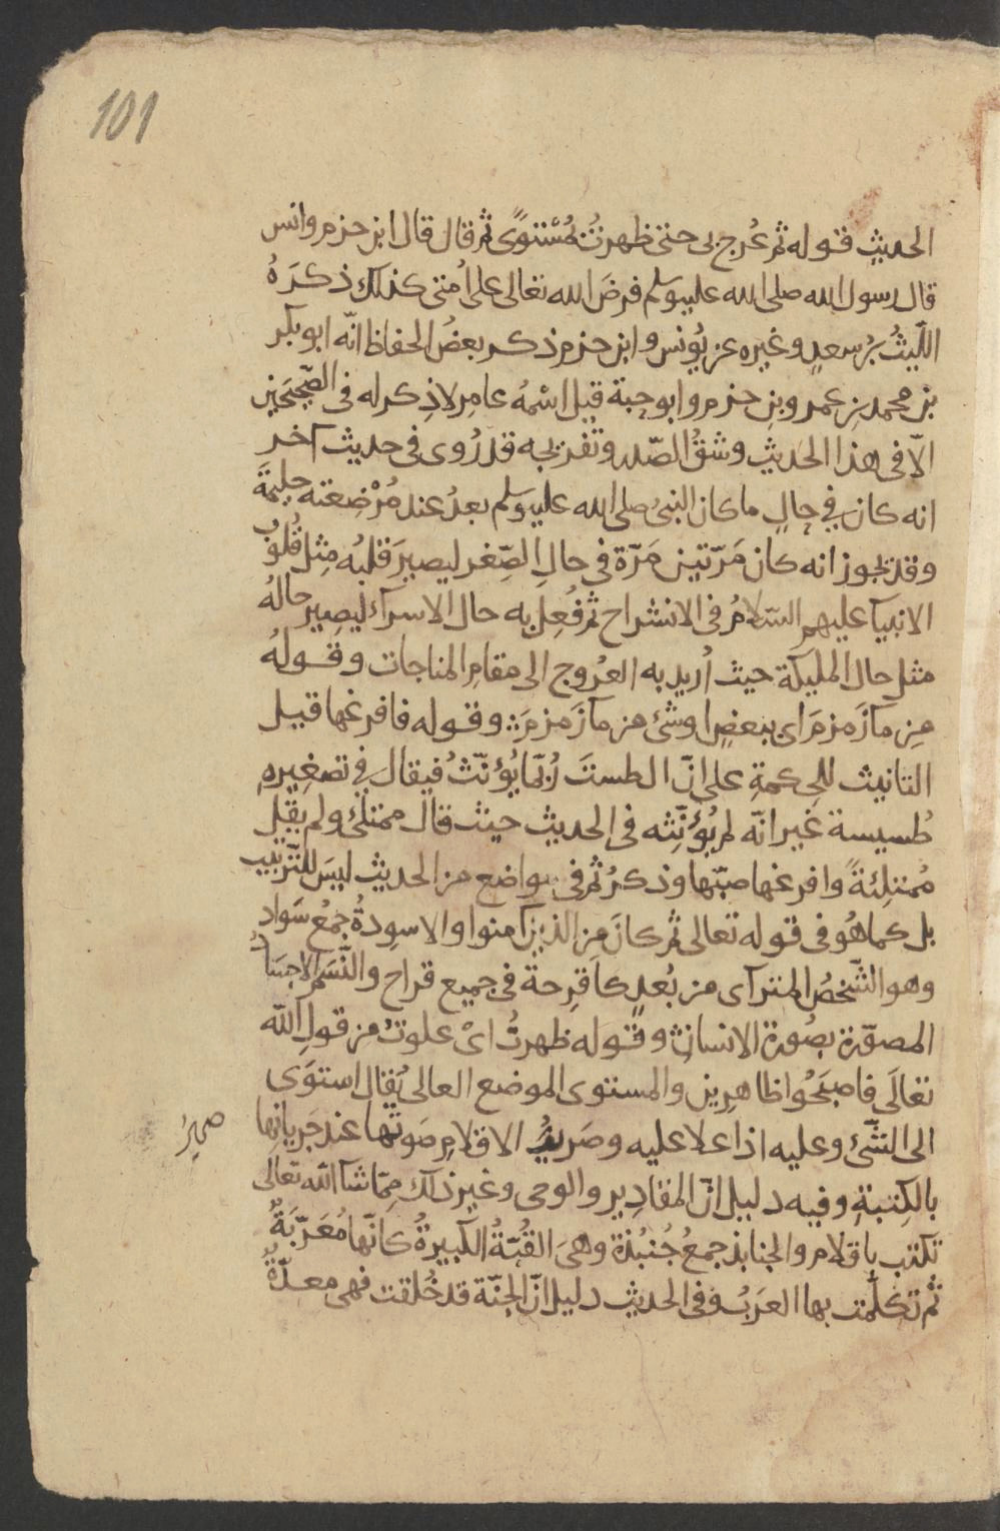 101
الحديث قوله ثم عُرج بى حتى ظهرتُ لمُسْتوًى ثم قال قال ابن حزم وانس
قال رسول الله صلى الله عليه وسلم فرضَ الله تعالى على اُمتى كذلك ذكرَهُ
اللّيثُ بنُ سعدٍ وغيره عن يُونس وابن حزم ذكر بعضُ الحفاظ انّه ابو بكر
بن محمد بن عمرو بن حزم وابو حبة قيل اسْمُهُ عامر لا ذِكر له فى الصّحِيحَين
الّا فى هذا الحديث وشقُ الصّدر وتفريجه قد رُوى فى حديث آخر
انه كان فى حالٍ ما كان النبىُ صلى الله عليه وسلم بعدُ عند مُرْضِعته حليمَةَ
وقد يجوز انه كان مَرّتين مَرّة فى حالِ الصِّغر ليصيرَ قلبُه مِثل قُلوبُ
الانبيآ عليهم السّلامُ فى الانشراح ثم فُعِل به حال الاسرآء ليصِير حالهُ
مثل حال المليكة حيث اُريد به العرُوج الى مقامِ المناجات وقولهُ
مِن مآزمزمَ اى ببعضٍ اوشئ من مآزمزمَ وقوله فافرغها قيل
التانيث للحِكمةِ على انّ الطستَ رُبّما يُؤنّثُ فيقال فى تصغيره
طُسيسة غير انّه لم يُؤنّثه فى الحديث حيث قال ممتلئ ولم يقل
مُمتلِئةً وافرغها صبّها وذكرُ ثم فى مواضع من الحديث ليسَ للتّرتيب
بل كما هُو فى قوله تعالى ثم كانَ مِن الذين آمنوا والاسوِدةُ جمعُ سَوادٍ
وهو الشّخصُ المترآى من بُعدٍ كاقرِحة فى جميع قراح والنّسَم الاجسَامُ
المصوّرة بصُورة الانسان وقوله ظهرتُ اىْ علوتُ من قولِ الله
تعالَى فاصبَحُوا ظاهِرين والمستوى الموضع العالى يُقال استوَى
الى الشّئ وعليه اذا علا عليه وصَريرُ الاقلامِ صَوتُها عند جَريانِها
بالكِتبةِ وفيه دليل انّ المقادِير والوحى وغير ذلك مِمّا شآ الله تعالى
تكتب باقلام والجنابذ جمعُ جُنبُذة وهىَ القُبّةُ الكبيرةُ كانّها مُعَرّبَةٌ
ثُم تكلّمت بها العرَبُ وفى الحديث دليل انّ الجنّة قد خُلقت فهى معدّةٌ